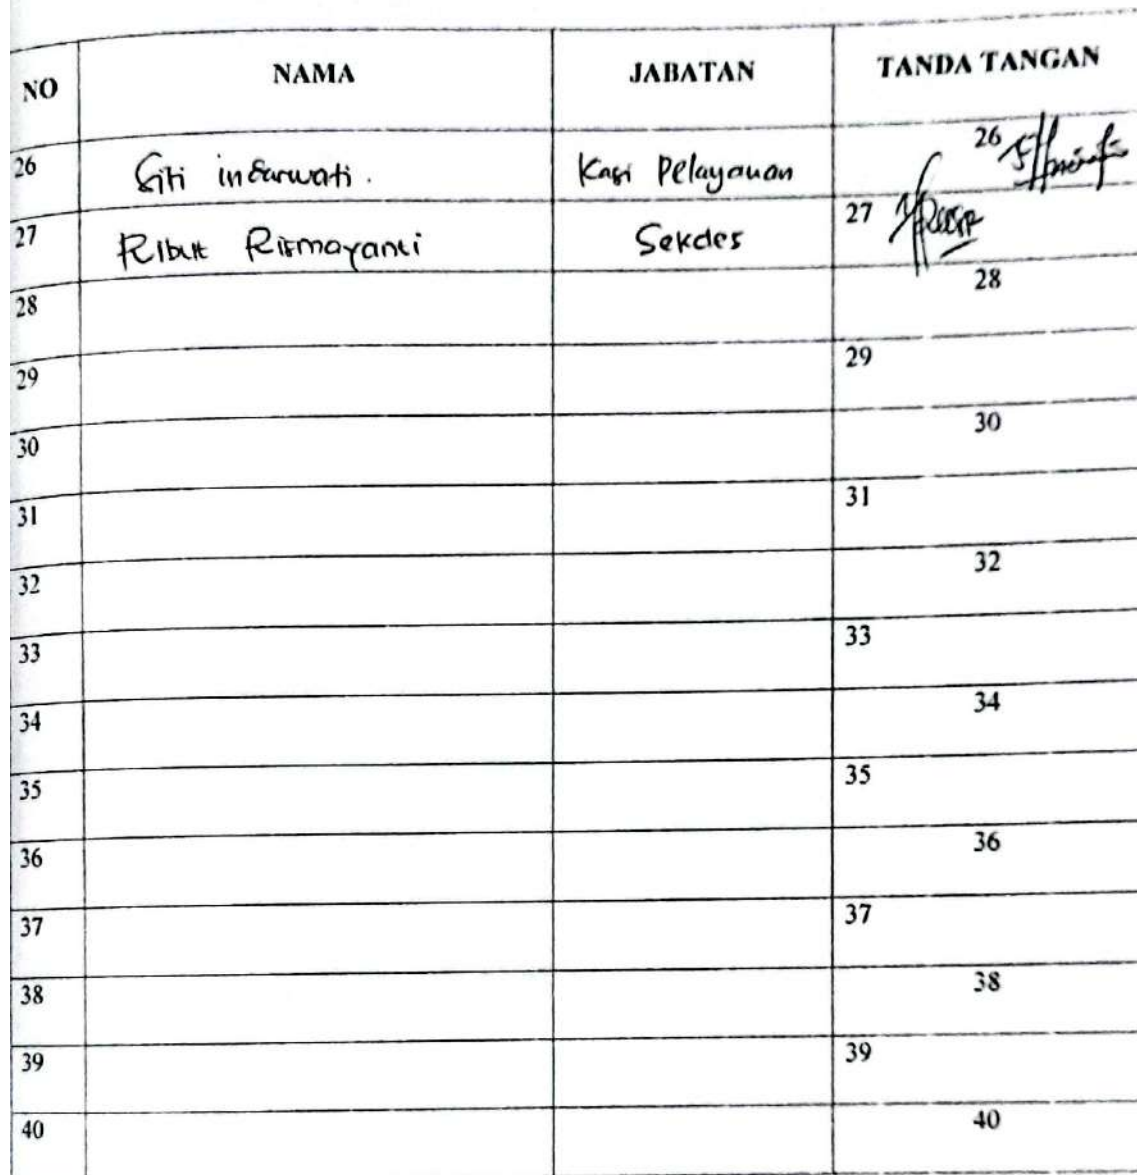 NO NAMA JABATAN TANDA TANGAN
26 Siti indarwati. Kasi Pelayanan 26
27 Ribut Rismayanti Sekdes 27
28 28
29 29
30 30
31 31
32 32
33 33
34 34
35 35
36 36
37 37
38 38
39 39
40 40